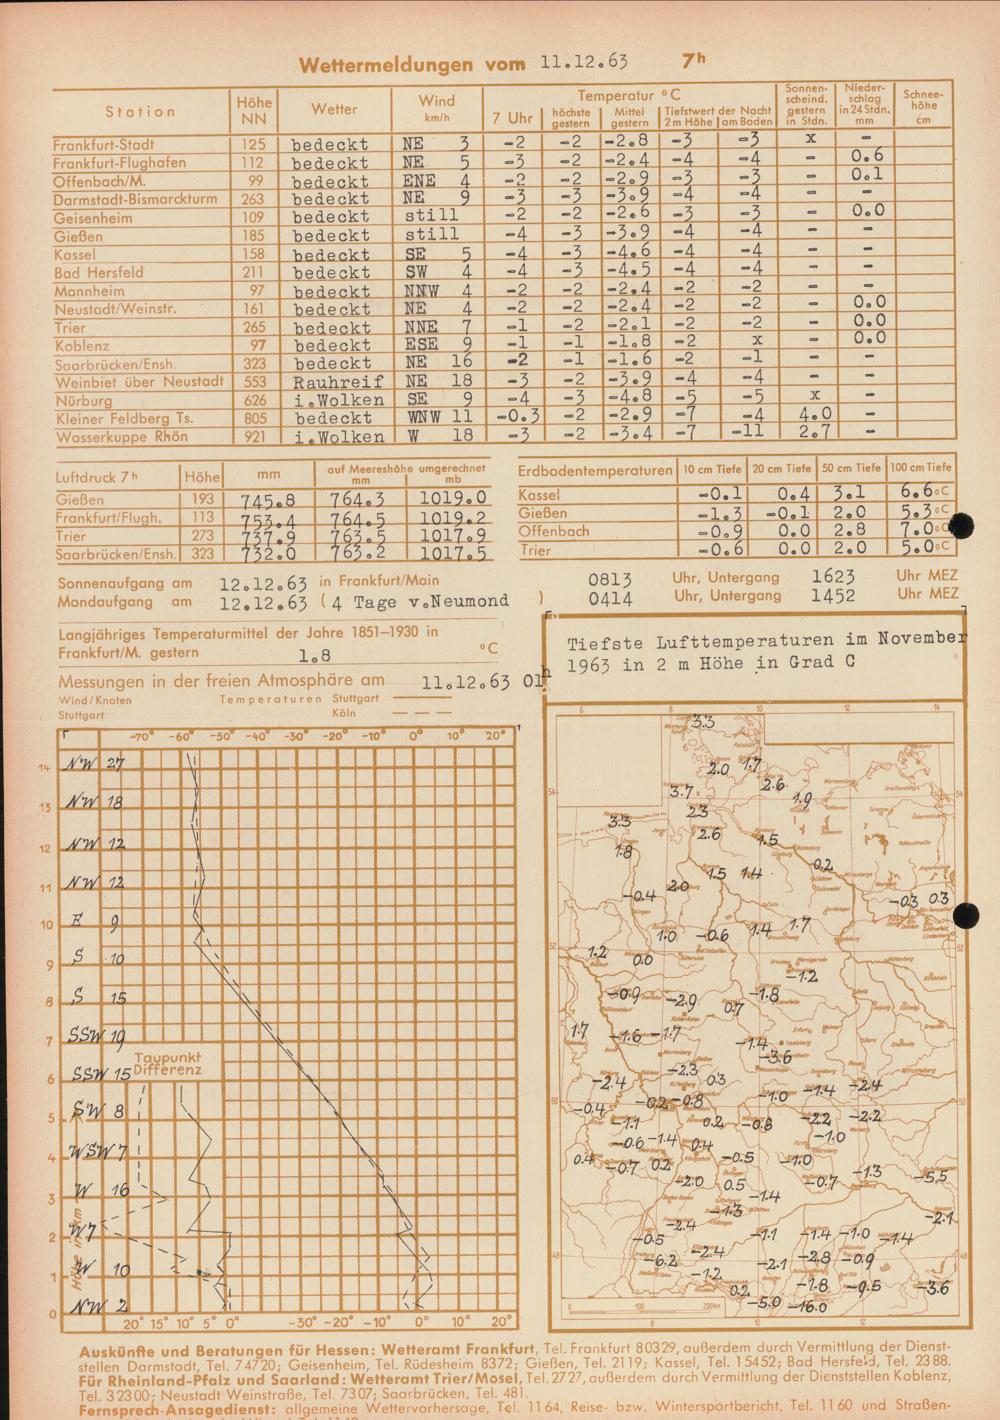 Wettermeldungen vom 11.12.63 7h
Station Höhe NN Wetter Wind km/h Temperatur °C Sonnen-scheind. gestern in Stdn. Nieder-schlag in 24 Stdn. mm Schnee-höhe cm
7 Uhr höchste gestern Mittel gestern Tiefstwert der Nacht 2 m Höhe am Boden
Frankfurt-Stadt 125 bedeckt NE 3 -2 -2 -2.8 -3 -3 x -
Frankfurt-Flughafen 112 bedeckt NE 5 -3 -2 -2.4 -4 -4 - 0.6
Offenbach/M. 99 bedeckt ENE 4 -2 -2 -2.9 -3 -3 - 0.1
Darmstadt-Bismarckturm 263 bedeckt NE 9 -3 -3 -3.9 -4 -4 - -
Geisenheim 109 bedeckt still -2 -2 -2.6 -3 -3 - 0.0
Gießen 185 bedeckt still -4 -3 -3.9 -4 -4 - -
Kassel 158 bedeckt SE 5 -4 -3 -4.6 -4 -4 - -
Bad Hersfeld 211 bedeckt SW 4 -4 -3 -4.5 -4 -4 - -
Mannheim 97 bedeckt NNW 4 -2 -2 -2.4 -2 -2 - -
Neustadt/Weinstr. 161 bedeckt NE 4 -2 -2 -2.4 -2 -2 - 0.0
Trier 265 bedeckt NNE 7 -1 -2 -2.1 -2 -2 - 0.0
Koblenz 97 bedeckt ESE 9 -1 -1 -1.8 -2 x - 0.0
Saarbrücken/Ensh. 323 bedeckt NE 16 -2 -1 -1.6 -2 -1 - -
Weinbiet über Neustadt 553 Rauhreif NE 18 -3 -2 -3.9 -4 -4 - -
Nürburg 626 i.Wolken SE 9 -4 -3 -4.8 -5 -5 x -
Kleiner Feldberg Ts. 805 bedeckt WNW 11 -0.3 -2 -2.9 -7 -4 4.0 -
Wasserkuppe Rhön 921 i.Wolken W 18 -3 -2 -3.4 -7 -11 2.7 -
Luftdruck 7h Höhe mm auf Meereshöhe umgerechnet mm mb
Gießen 193 745.8 764.3 1019.0
Frankfurt/Flugh. 113 753.4 764.5 1019.2
Trier 273 737.9 763.5 1017.9
Saarbrücken/Ensh. 323 732.0 763.2 1017.5
Erdbodentemperaturen 10 cm Tiefe 20 cm Tiefe 50 cm Tiefe 100 cm Tiefe
Kassel -0.1 0.4 3.1 6.6°C
Gießen -1.3 -0.1 2.0 5.3°C
Offenbach -0.9 0.0 2.8 7.0°C
Trier -0.6 0.0 2.0 5.0°C
Sonnenaufgang am 12.12.63 in Frankfurt/Main 0813 Uhr, Untergang 1623 Uhr MEZ
Mondaufgang am 12.12.63 (4 Tage v.Neumond ) 0414 Uhr, Untergang 1452 Uhr MEZ
Langjähriges Temperaturmittel der Jahre 1851–1930 in
Frankfurt/M. gestern 1.8 °C
Messungen in der freien Atmosphäre am 11.12.63 01h
Wind/Knoten Temperaturen Stuttgart
Stuttgart Köln
-70° -60° -50° -40° -30° -20° -10° 0° 10° 20°
14 NW 27
13 NW 18
12 NW 12
11 NW 12
10 E 9
9 S 10
8 S 15
7 SSW 19
Taupunkt
Differenz
6 SSW 15
5 SW 8
4 WSW 7
3 W 16
2 W 7
1 W 10
0 NW 2
Höhe in km
20° 15° 10° 5° 0° -30° -20° -10° 0° 10° 20°
Tiefste Lufttemperaturen im November
1963 in 2 m Höhe in Grad C
6 8 10 12 14
3.3
2.0 1.7
3.7 2.6 1.9
54 54
3.3 2.3
1.8 2.6 1.5
1.5 1.4 0.2
-0.4 2.0 -0.3 0.3
1.0 -0.6 1.4 1.7
52 52
1.2 0.0 -1.2
-0.9 -2.9 0.7 -1.8
1.7 -1.6 -1.7 -1.4 -3.6
-2.4 -2.3 0.3 -1.0 -1.4 -2.4
50 50
-0.4 -0.2 -0.8
-1.1 0.2 -0.8 -2.2 -2.2
-0.6 -1.4 0.4 -1.0
0.4 -0.7 0.2 -0.5 -1.0
-2.0 0.5 -0.7 -1.3 -5.5
-1.4
-1.3 -2.1
-2.4
-0.5 -1.1 -1.4 -1.0 -1.4
48 48
-6.2 -2.4 -2.1 -2.8 -0.9
-1.2 -1.8 -9.5 -3.6
0.2 -5.0 -16.0
0 100 200km
8 10 12
Auskünfte und Beratungen für Hessen: Wetteramt Frankfurt, Tel. Frankfurt 80329, außerdem durch Vermittlung der Dienst-
stellen Darmstadt, Tel. 74720; Geisenheim, Tel. Rüdesheim 8372; Gießen, Tel. 2119; Kassel, Tel. 15452; Bad Hersfeld, Tel. 2388.
Für Rheinland-Pfalz und Saarland: Wetteramt Trier/Mosel, Tel. 2727, außerdem durch Vermittlung der Dienststellen Koblenz,
Tel. 32300; Neustadt Weinstraße, Tel. 7307; Saarbrücken, Tel. 481.
Fernsprech-Ansagedienst: allgemeine Wettervorhersage, Tel. 1164, Reise- bzw. Wintersportbericht, Tel. 1160 und Straßen-